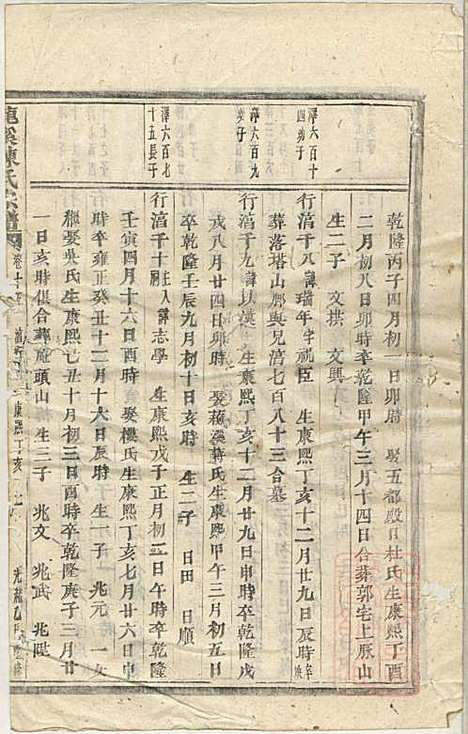 乾隆丙子四月初一日卯時 娶五都殿口杜氏生康熙丁酉
二月初八日卯時卒乾隆甲午三月十四日合葬郭宅上厫山
生二子 文拱 文興
澤六百十四弟子
行滈千八 諱瑞年字祝臣 生康熙丁亥十二月廿九日辰時卒
葬落塔山鄰與兄滈七百八十三合墓
澤六百九 子
行滈千九 諱扶漢 生康熙丁亥十二月廿九日申時卒乾隆戊
戌八月廿四日卯時 娶 溪蔣氏生康熙甲午三月初五日
卒乾隆壬辰九月初十日亥時 生二子 日田 日順
澤六百七十五長子
行滈千十 諱志學 生康熙戊子正月初二日午時卒乾隆
壬寅四月十六日酉時 娶樓氏生康熙丁亥七月廿六日申
時卒雍正癸丑十二月十六日辰時 生一子 兆元 一女
繼娶吳氏生康熙己丑十月初三日酉時卒乾隆庚子三月廿
一日亥時俱合葬庵頭山 生三子 兆文 兆武 兆熙
溪陳氏宗譜 卷十 康熙丁亥 光緒